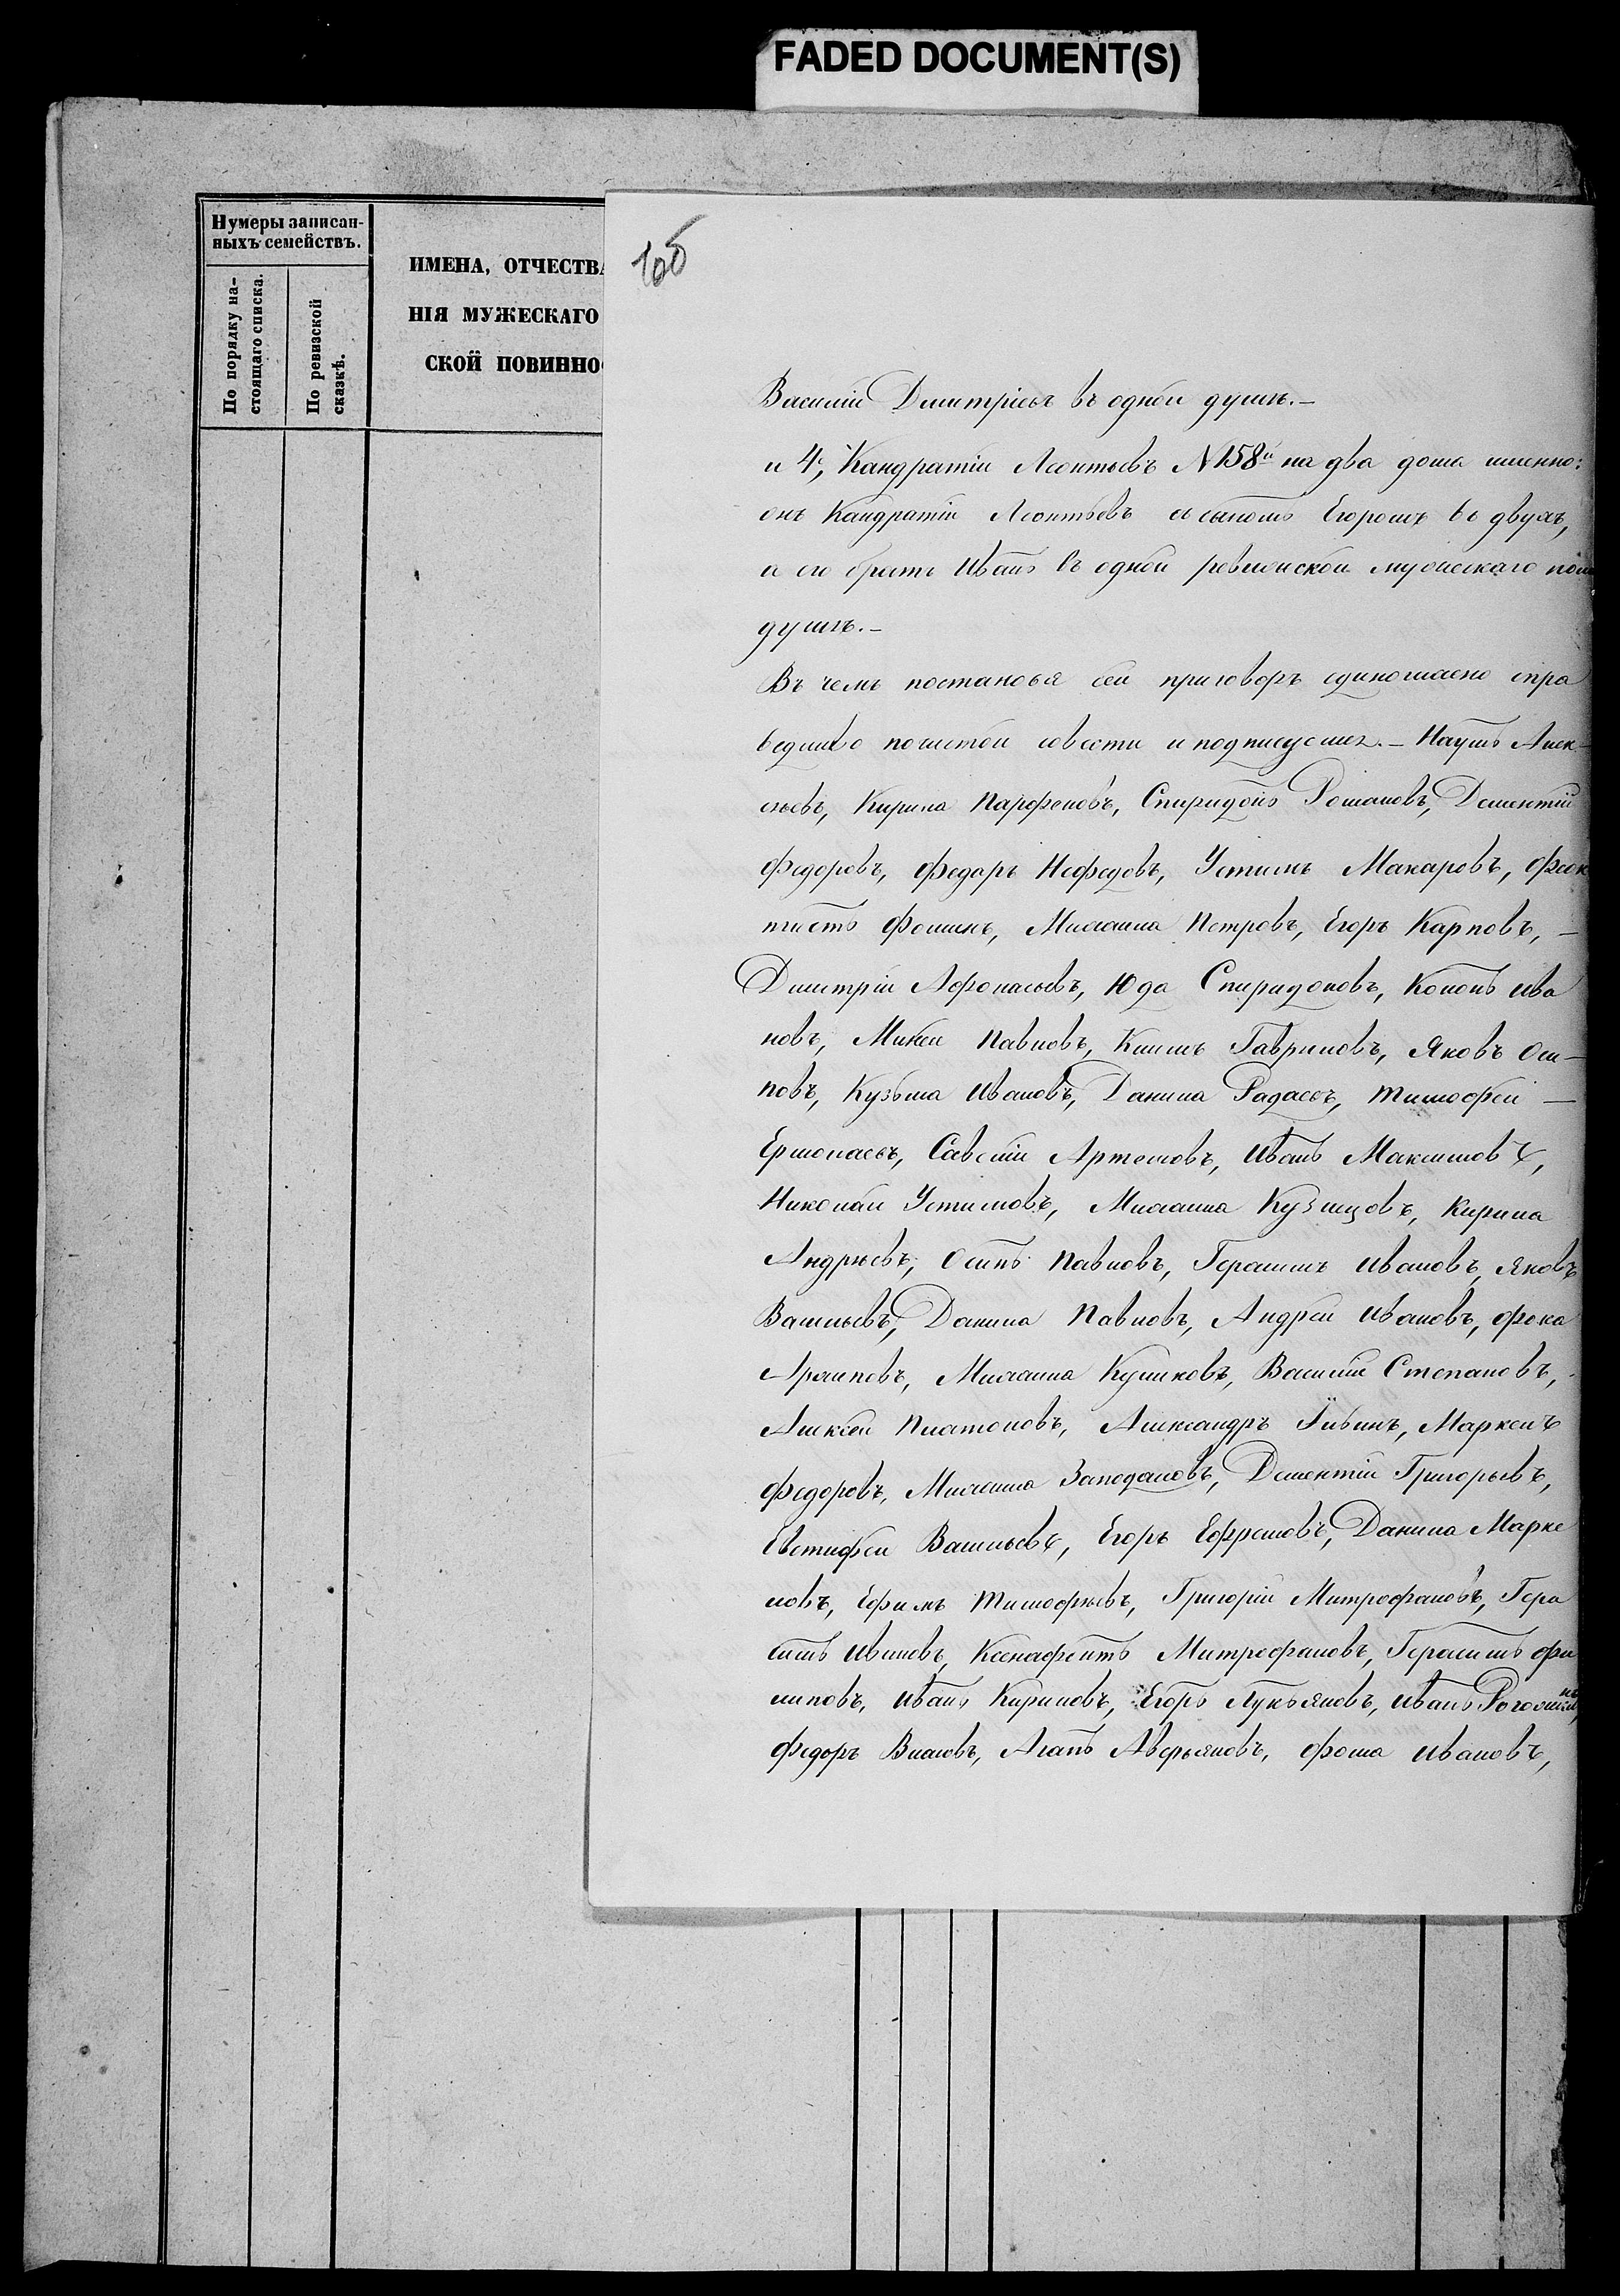 FADED DOCUMENT(S)
Нумеры записан-
ныхъ семействъ.
По порядку на-
стоящаго списка.
По ревизской
сказкѣ.
ИМЕНА, ОТЧЕСТВА
НІЯ МУЖЕСКАГО
СКОЙ ПОВИННО
Василій Дмитріевъ въ одной душѣ.—
и 4, Кандратій Леонтьевъ N158й на два дома именно:
онъ Кандратій Леонтьевъ съ сыномъ Егоромъ въ двухъ,
а его братъ Иванъ въ одной ревизской мужескаго пола
душѣ.—
Въ чемъ постановя сей приговоръ единогласно спра
ведливо почистой совести и подписуемся.— Наумъ Алек-
сѣевъ, Кирила Парфеновъ, Спиридонъ Романовъ, Дементій
Федоровъ, Федоръ Нефедовъ, Устинъ Макаровъ, Феок
тистъ Фоминъ, Михаила Петровъ, Егоръ Карповъ, —
Дмитрій Афонасьевъ, Юда Спиридоновъ, Кононъ Ива
новъ, Микей Павловъ, Климъ Гавриловъ, Яковъ Оси—
повъ, Кузьма Ивановъ, Данила Радаевъ, Тимофей —
Ермолаевъ, Савелій Артемовъ, Иванъ Максимовъ,
Николай Устиновъ, Михаила Кузнецовъ, Кирила
Андрѣевъ, Осипъ Павловъ, Герасимъ Ивановъ, Яковъ
Васильевъ, Данила Павловъ, Андрей Ивановъ, Фока
Архиповъ, Михаила Куликовъ, Василій Степановъ,
Алексей Платоновъ, Александръ Зибинъ, Маркелъ
Федоровъ, Михаила Заподаловъ, Дементій Григорьевъ,
Евстифей Васильевъ, Егоръ Ефремовъ, Данила Марке
ловъ, Ефимъ Тимофѣевъ, Григорій Митрофановъ, Гера
симъ Ивановъ, Ксенафонтъ Митрофановъ, Герасимъ Фи
липовъ, Иванъ Кириловъ, Егоръ Лукьяновъ, Иванъ Рогожинъ,
Федоръ Власовъ, Агапъ Аверьяновъ, Фома Ивановъ,